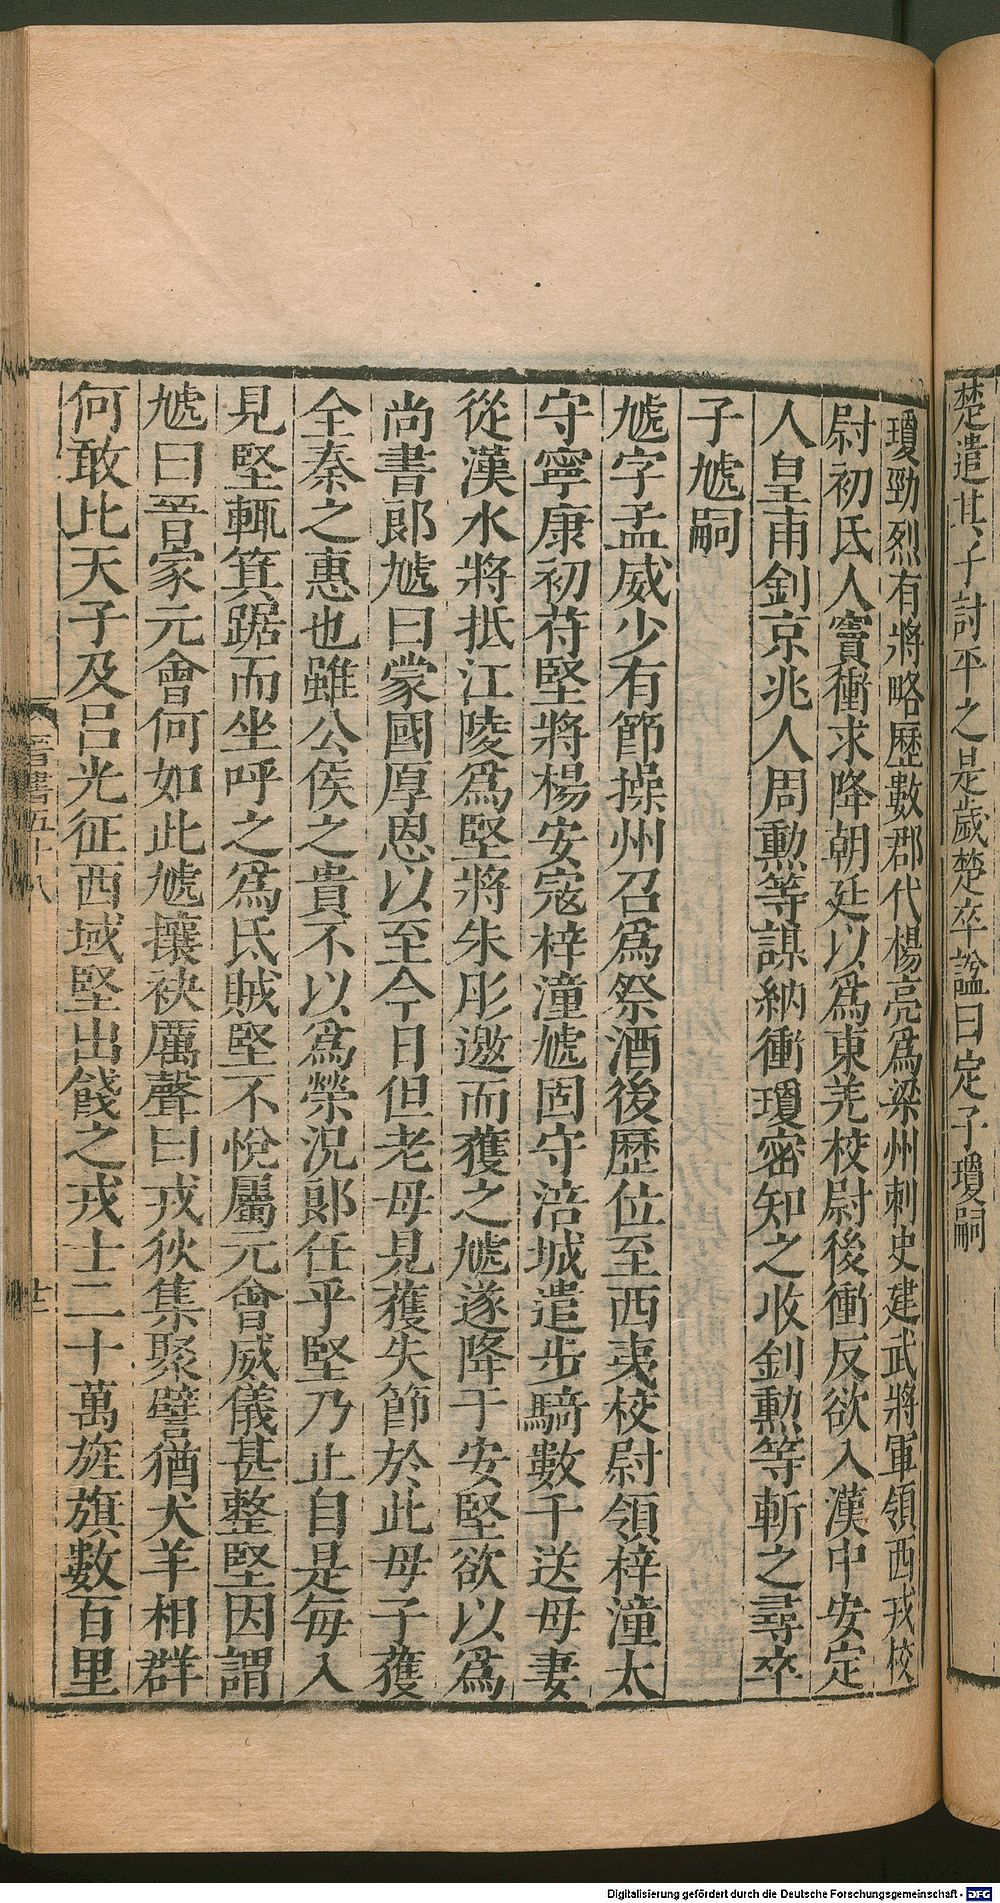 楚遣其子討平之是歲楚卒諡曰定子瓊嗣
瓊勁烈有將略歷數郡代楊亮爲梁州刺史建武將軍領西戎校
尉初氐人竇衝求降朝廷以爲東羌校尉後衝反欲入漢中安定
人皇甫釗京兆人周勳等謀納衝瓊密知之收釗勳等斬之尋卒
子虓嗣
虓字孟威少有節操州召爲祭酒後歷位至西夷校尉領梓潼太
守寧康初苻堅將楊安寇梓潼虓固守涪城遣步騎數千送母妻
從漢水將抵江陵爲堅將朱肜邀而獲之虓遂降于安堅欲以爲
尚書郎虓曰蒙國厚恩以至今日但老母見獲失節於此母子獲
全秦之惠也雖公侯之貴不以爲榮況郎任乎堅乃止自是每入
見堅輒箕踞而坐呼之爲氐賊堅不悅屬元會威儀甚整堅因謂
虓曰晉家元會何如此虓攘袂厲聲曰戎狄集聚譬猶犬羊相群
何敢比天子及呂光征西域堅出餞之戎士二十萬旌旗數百里
晉書五十八
十二
Digitalisierung gefördert durch die Deutsche Forschungsgemeinschaft - DFG